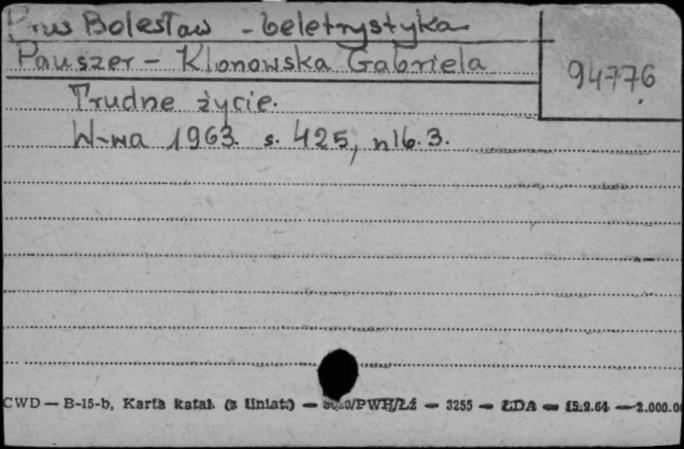 Prus Bolesław - beletrystyka
Pauszer - Klonowska Gabriela
94776
Trudne życie.
W-wa 1963. s. 425, nlb. 3.
CWD — B-15-b, Karta katal. (z liniat.) — /PWH/Łź — 3255 — ŁDA — 15.9.64 — 2.000.0